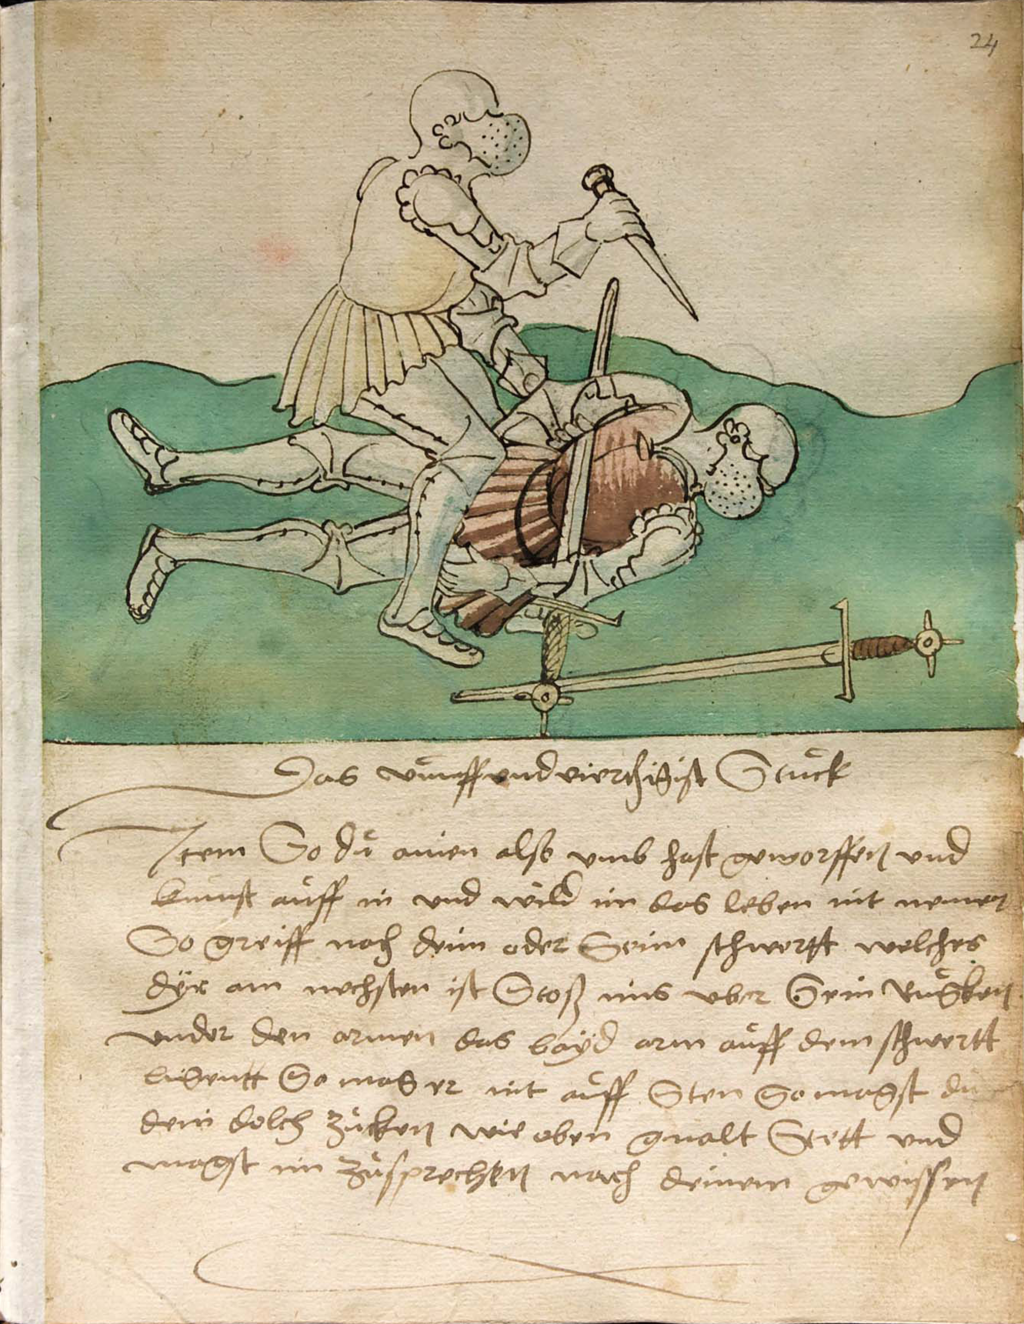 24
Das vünff vnd vierzigist Stuck
Item So dü ainen also vmb hast geworffen vnd
kumst aüff in vnd wild im das leben nit nemen
So greiff nach deim oder Seim schwertt welches
dÿr am nechsten ist Stoß ims vber Sein Rügken
vnder den armen das bayd arm aüff dem schwertt
ligentt So mag er nit aüff Sten So magst dü
dein dolch zücken wie oben gmalt Stett vnd
magst im züsprechen nach deinem gewissen